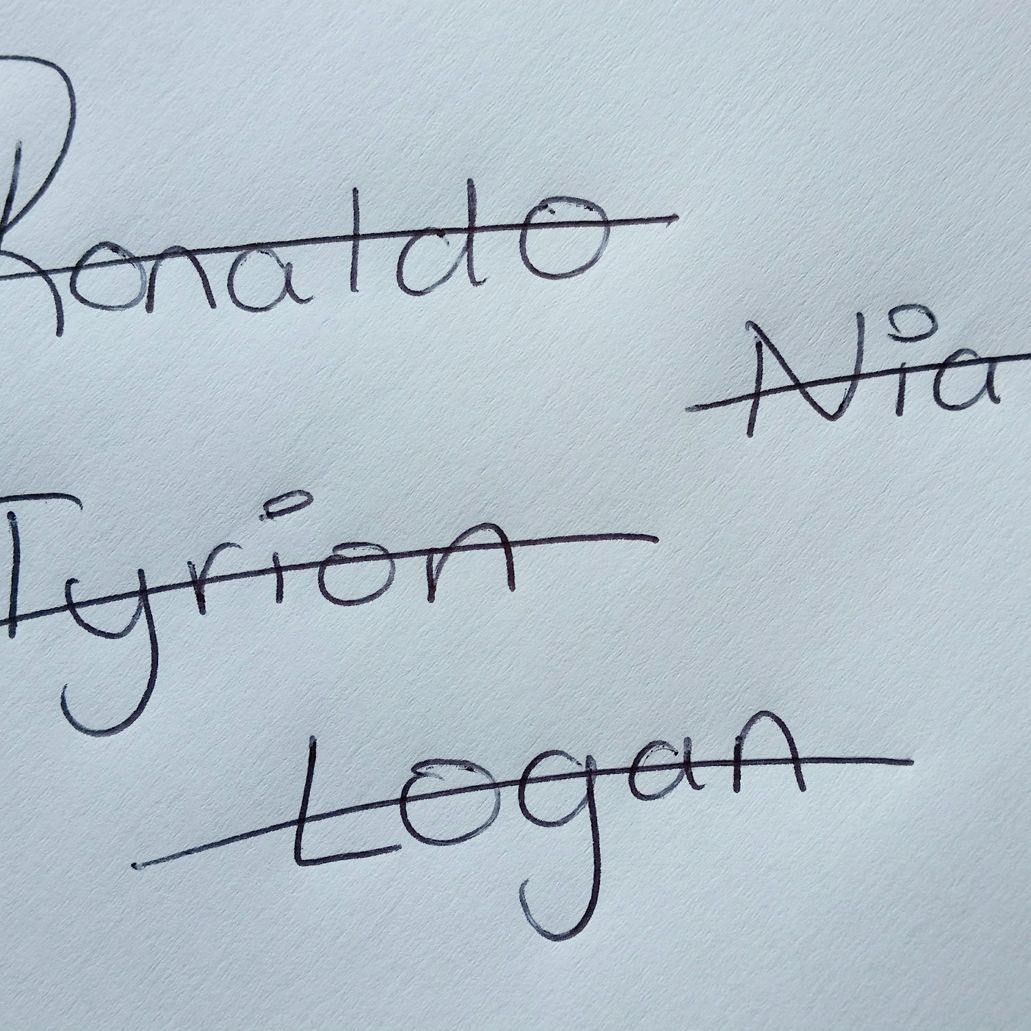 Ronaldo
Nia
Tyrion
Logan